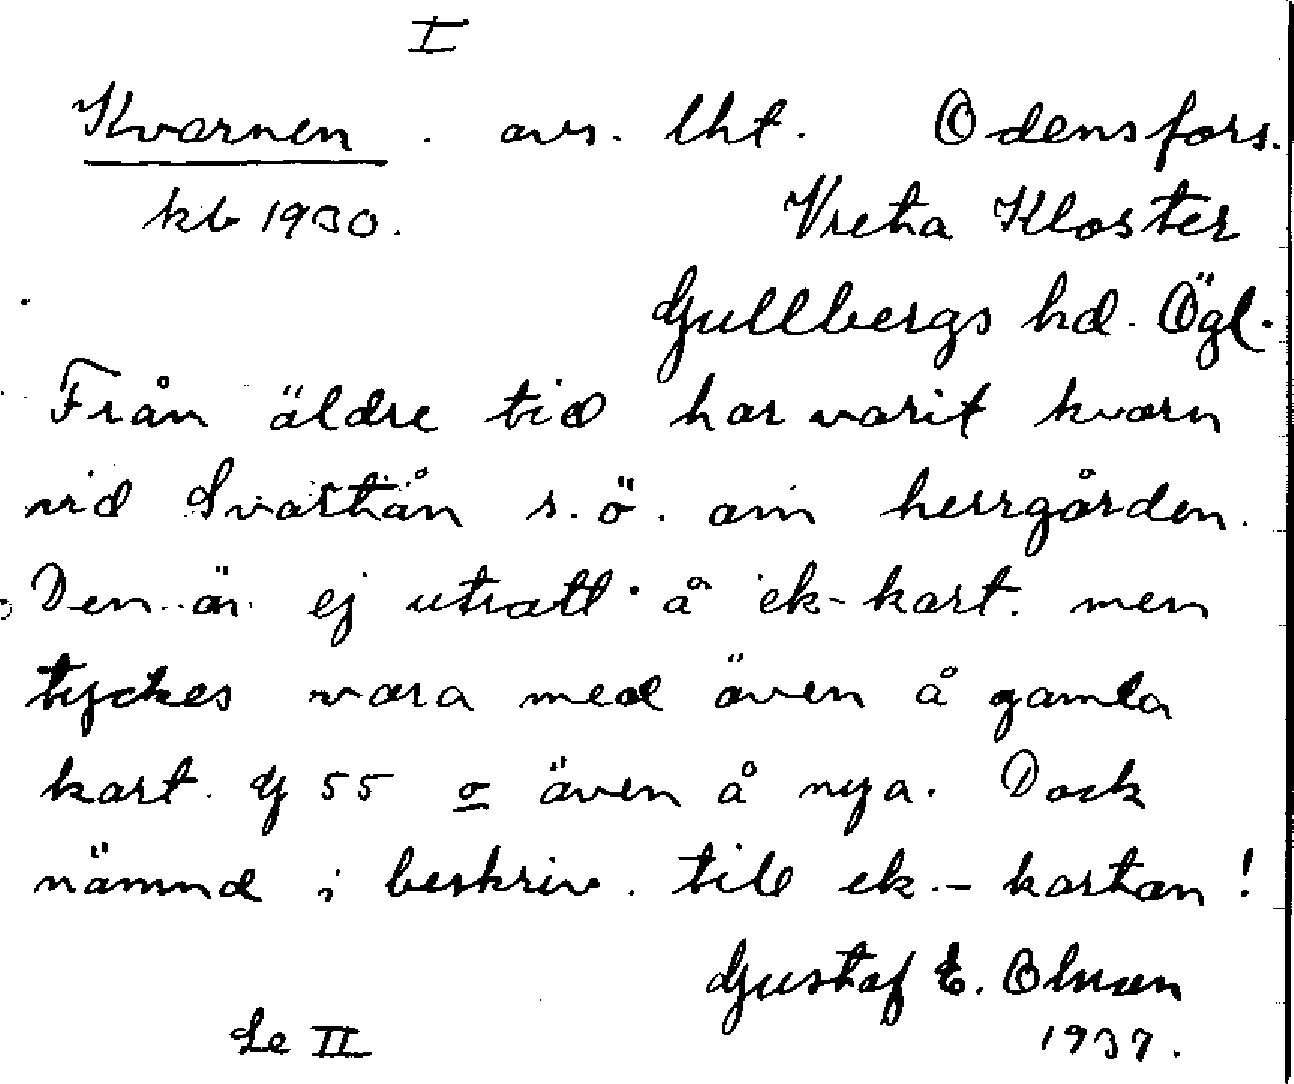 I
Kvarnen . avs. lht. Odensfors.
kb 1930. Vreta Kloster
Gullbergs hd. Ögl.
Från äldre tid har varit kvarn
vid Svartån s.ö. om herrgården.
Den är ej utsatt å ek-kart. men
tyckes vara med även å gamla
kart. Y 55 o även å nya. Dock
nämnd i beskriv. till ek.-kartan!
Gustaf E. Olsson
Se II 1937.